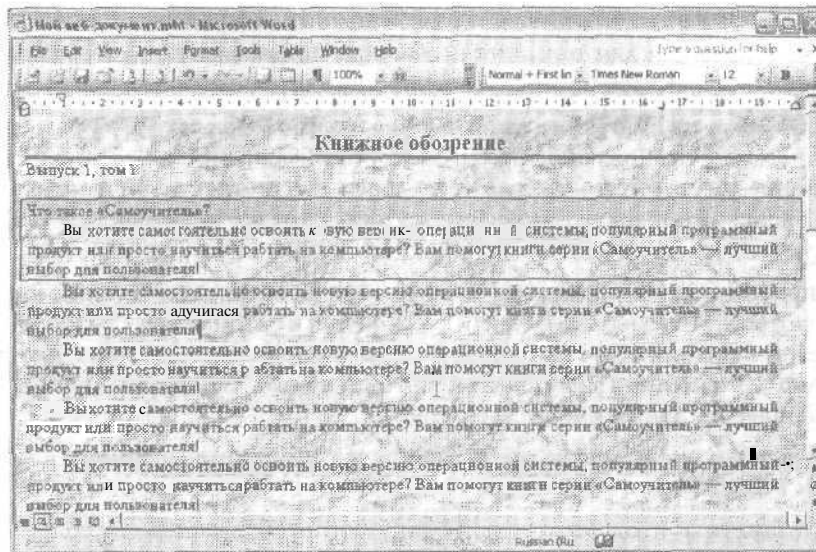 Мой веб-документ.mht - Microsoft Word
File Edit View Insert Format Tools Table Window Help
Type a question for help
100%
Normal + First lin
Times New Roman
12
B
2 1 3 4 5 6 7 8 9 10 11 12 13 14 15 16 17 18 19
Книжное обозрение
Выпуск 1, том 1
Что такое «Самоучитель»?
Вы хотите самостоятельно освоить системы, популярный программный
продукт или просто научиться рабтать на компьютере? Вам помогут книги серии «Самоучитель» — лучший
выбор для пользователя!
Вы хотите самостоятельно освоить новую версию операционной системы, популярный программный
продукт или просто адучигася рабтать на компьютере? Вам помогут книги серии «Самоучитель» — лучший
выбор для пользователя!
Вы хотите самостоятельно освоить новую версию операционной системы, популярный программный
продукт или просто научиться рабтать на компьютере? Вам помогут книги серии «Самоучитель» — лучший
выбор для пользователя!
Вы хотите самостоятельно освоить новую версию операционной системы, популярный программный
продукт или просто научиться рабтать на компьютере? Вам помогут книги серии «Самоучитель» — лучший
выбор для пользователя!
Вы хотите самостоятельно освоить новую версию операционной системы, популярный программный
продукт или просто научиться рабтать на компьютере? Вам помогут книги серии «Самоучитель» — лучший
выбор для пользователя!
Russian (Ru